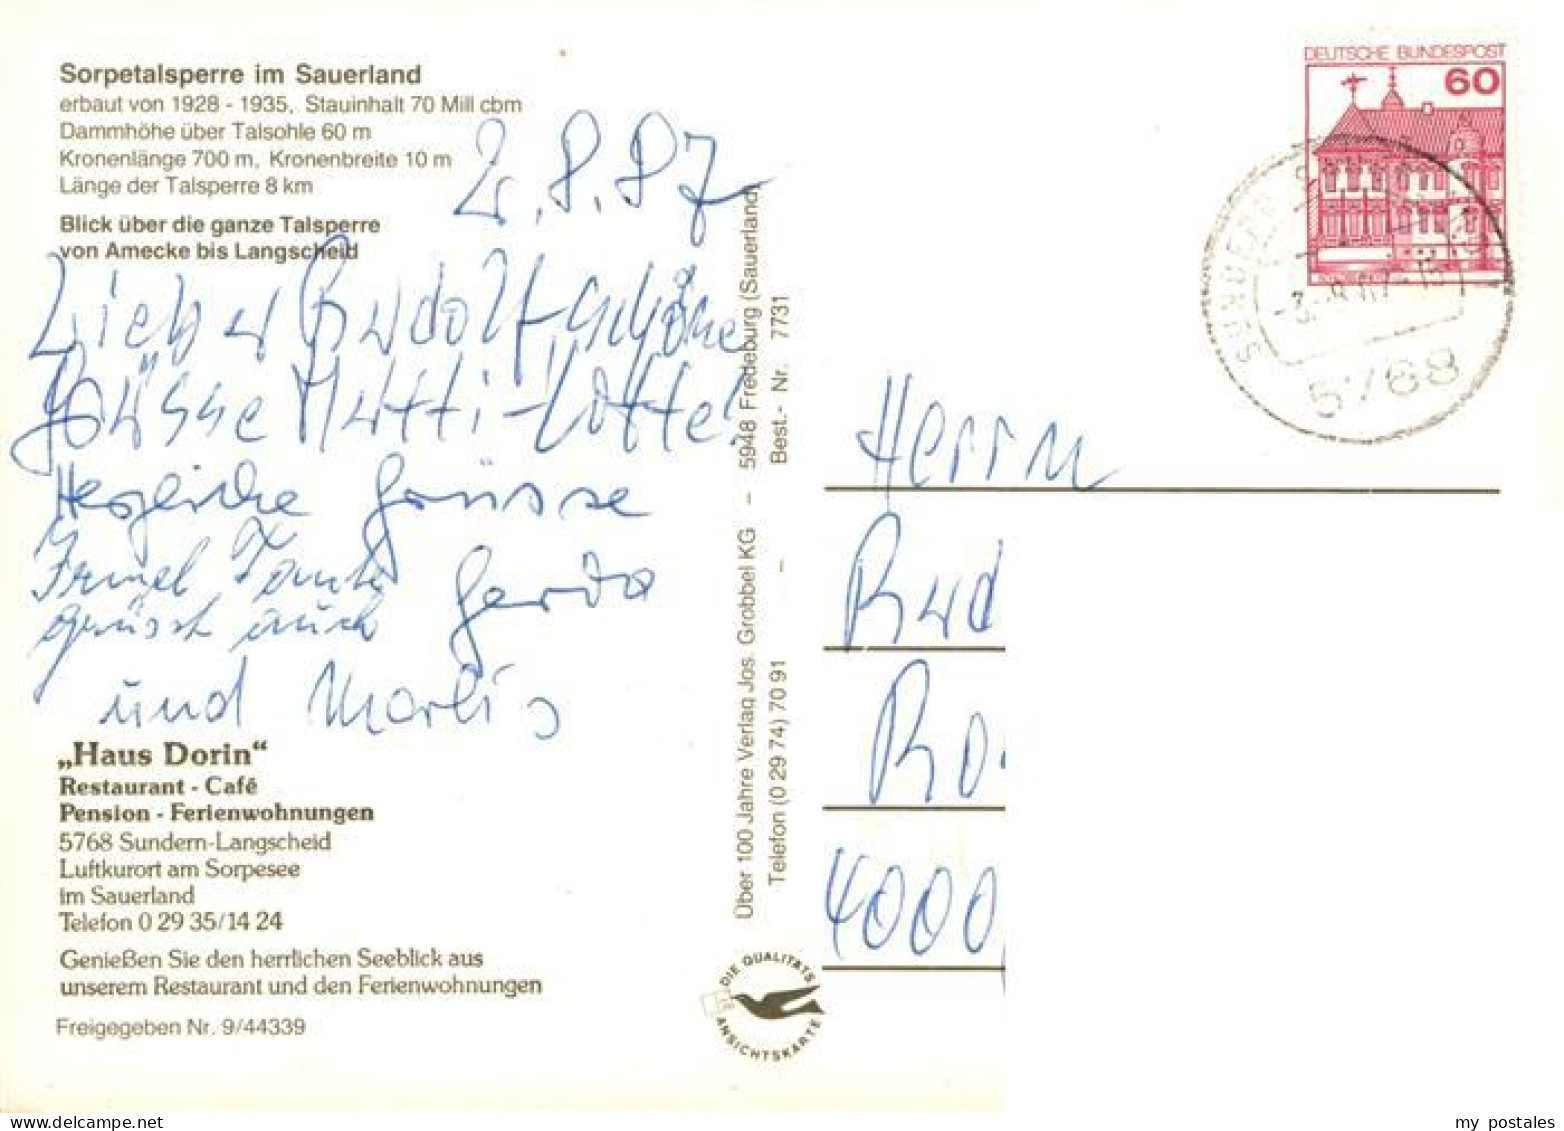 Sorpetalsperre im Sauerland
erbaut von 1928 - 1935, Stauinhalt 70 Mill cbm
Dammhöhe über Talsohle 60 m
Kronenlänge 700 m, Kronenbreite 10 m
Länge der Talsperre 8 km
Blick über die ganze Talsperre
von Amecke bis Langscheid
2.8.87
Lieber Rudolf schöne
Grüsse Mutti - Lotte!
Herzliche Grüsse
Irmel Tante Gerda
grüsst auch
und Marlis
„Haus Dorin“
Restaurant - Café
Pension - Ferienwohnungen
5768 Sundern-Langscheid
Luftkurort am Sorpesee
im Sauerland
Telefon 0 29 35/14 24
Genießen Sie den herrlichen Seeblick aus
unserem Restaurant und den Ferienwohnungen
Freigegeben Nr. 9/44339
Über 100 Jahre Verlag Jos. Grobbel KG – 5948 Fredeburg (Sauerland)
Telefon (0 29 74) 70 91 – Best.- Nr. 7731
DIE QUALITÄTS
ANSICHTSKARTE
DEUTSCHE BUNDESPOST
60
SUNDERN
-3.-8.87-15
5768
Herrn
Rud
Ro
4000
my postales